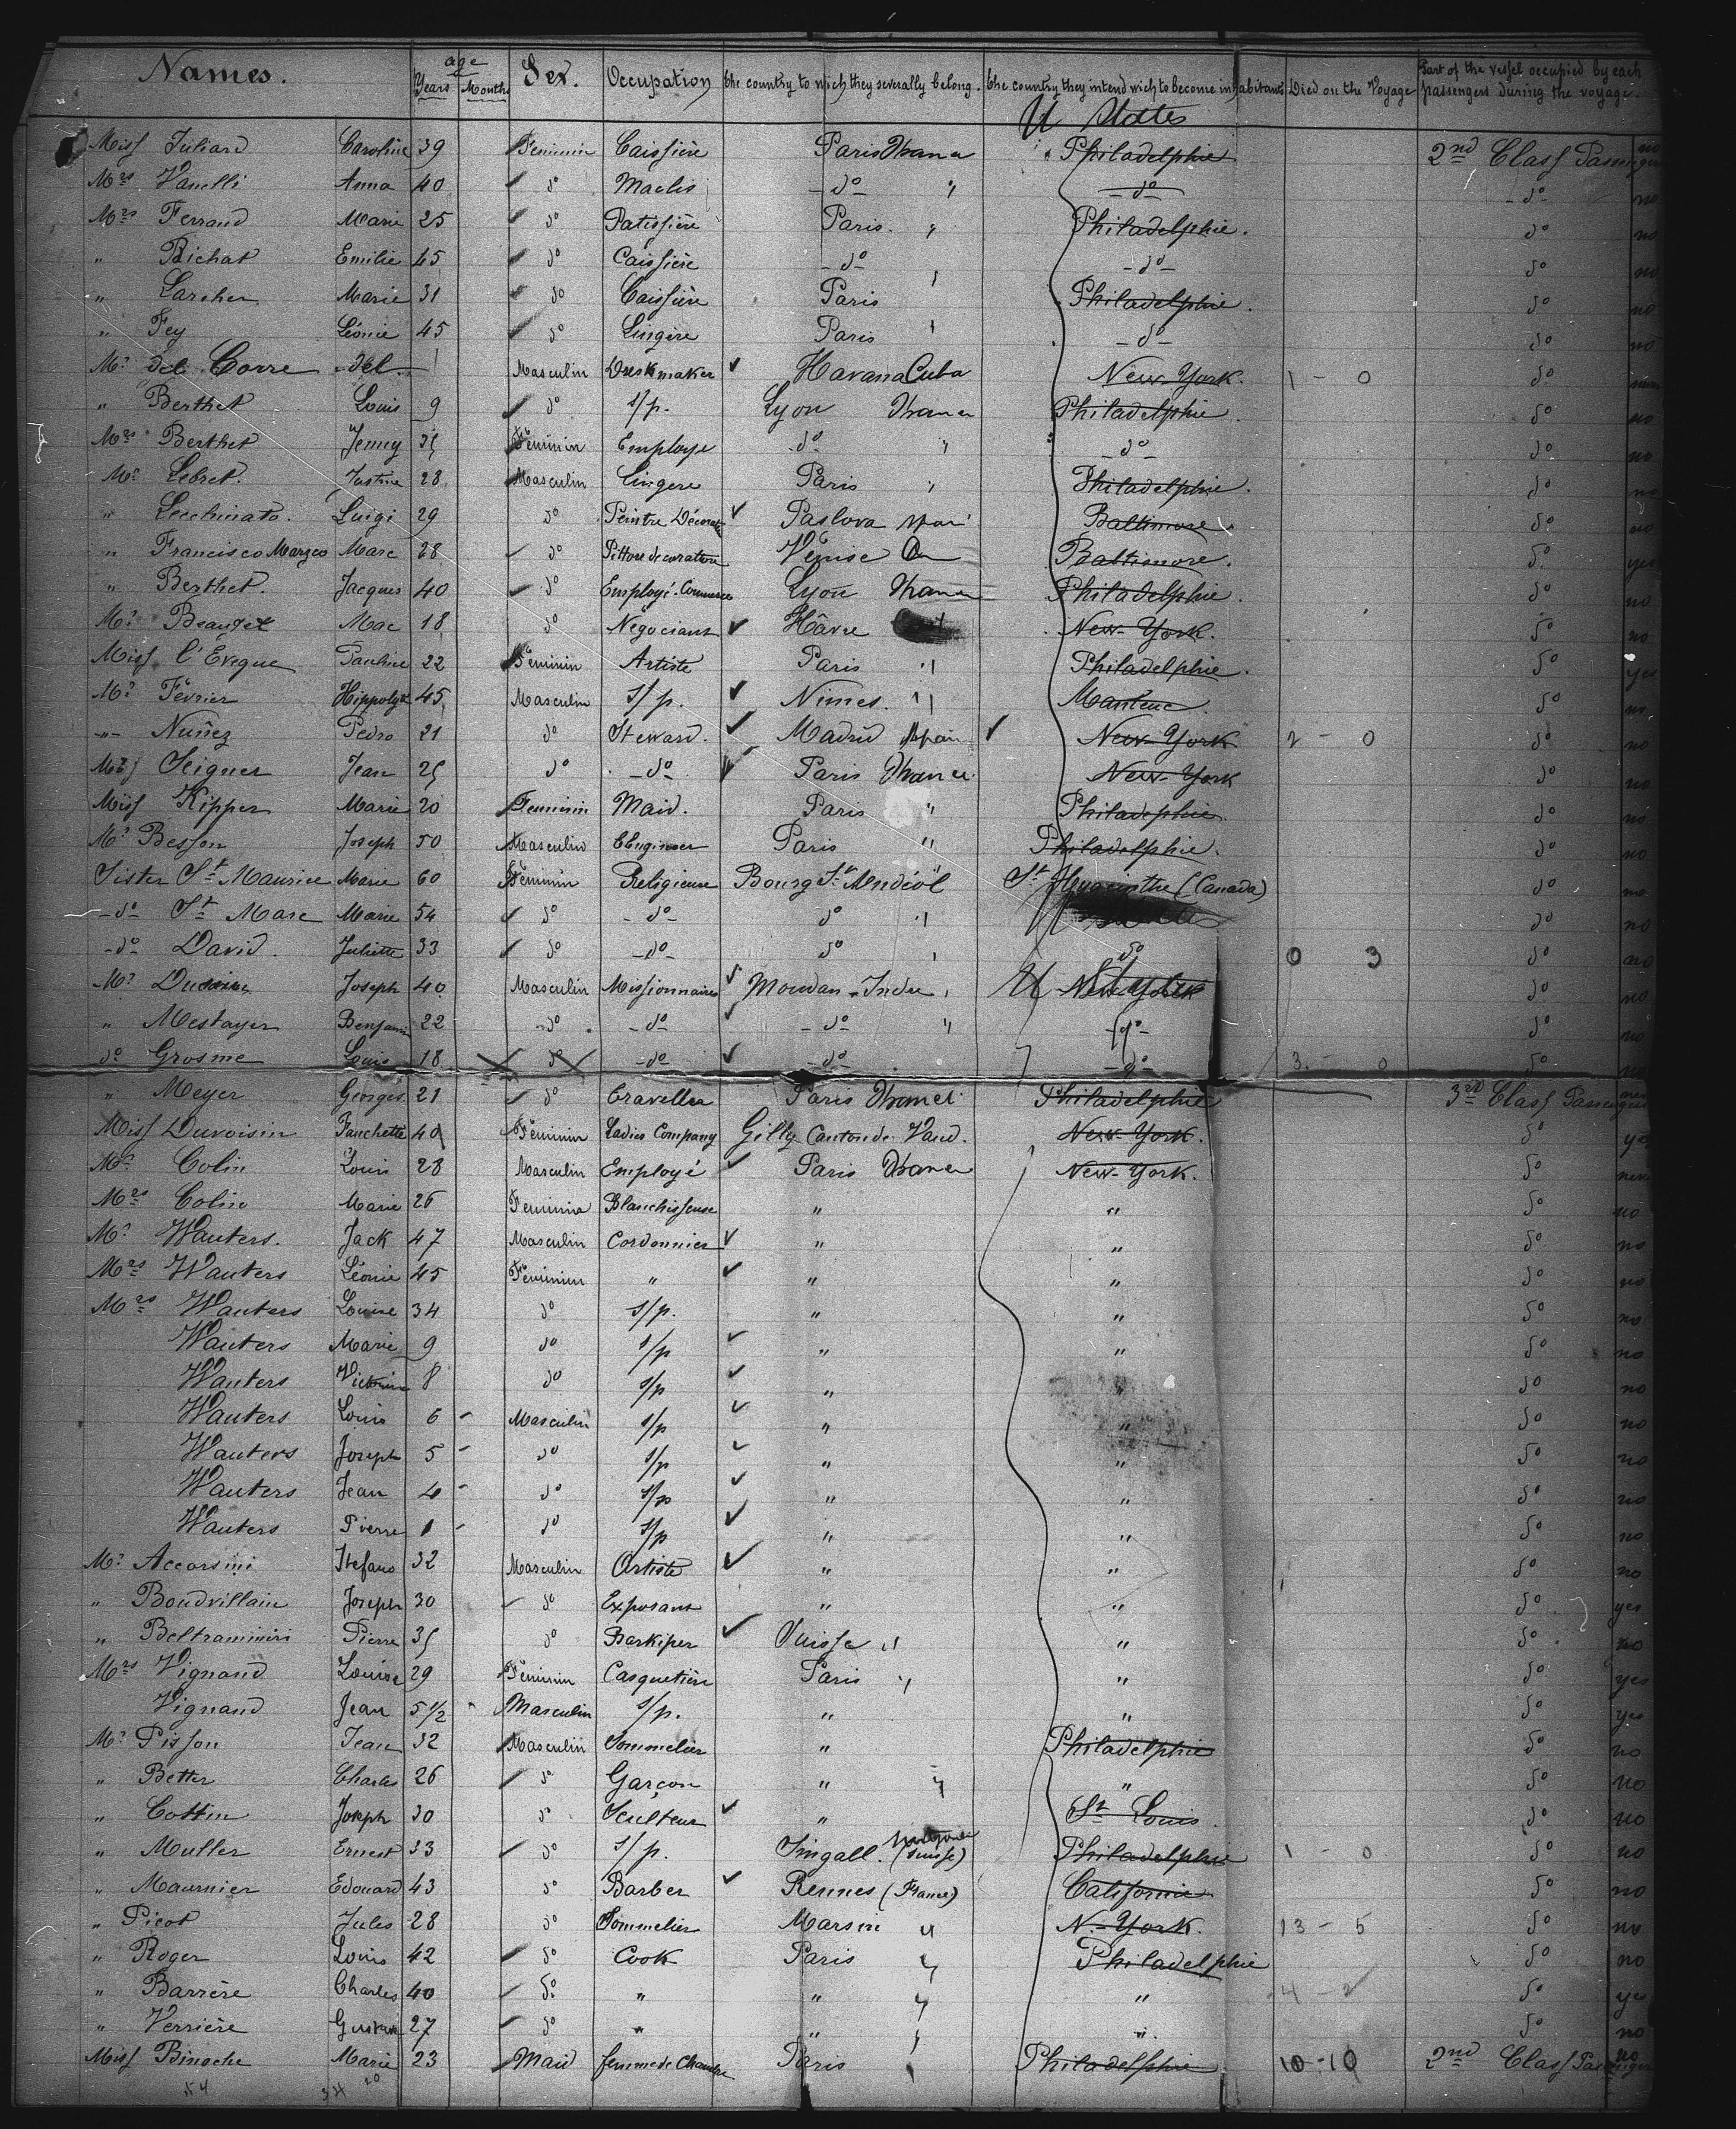 Names. age Years Months Sex. Occupation the country to wich they severally belong. the country they intend wich to become inhabitants Died on the Voyage Part of the vessel occupied by each passengers during the voyage.
U States
Miss Juliard Caroline 39 Feminin Caissière Paris France Philadelphie 2nd Class Passengers no
Mrs Vanelli Anna 40 do do " do do no
Mrs Ferrand Marie 25 do Patissière Paris. " Philadelphie. do no
" Bichat Emilie 45 do Caissière do " do do no
" Larcher Marie 31 do Caissière Paris Philadelphie. do no
" Fey Léonie 45 do Lingère Paris " do do no
Mr del Corre del 1 Masculin Havana Cuba New-York. 1 - 0 do
" Berthet Louis 9 do s/p. Lyon France Philadelphie. do no
Mrs Berthet Jenny 35 Féminin Employe do " do do no
Mr Lebret. Justine 28 Masculin Lingere Paris " Philadelphie. do no
" Lecchinato. Luigi 29 do Peintre Décorateur Baltimore. do no
" Francisco Marzeo Marc 28 do Pittore decoratore Venise Baltimore. do yes
" Berthet. Jacques 40 do Employé-Commerce Lyon France Philadelphie. do no
Mr Mac 18 do Négociant Hâvre New-York. do no
Miss l'Eveque Pauline 22 Féminin Artiste Paris " Philadelphie. do yes
Mr Février Hippolyte 45 Masculin s/p. Nimes. " do no
-"- Nuñez Pedro 21 do Steward. Madrid Spain New-York 2 - 0 do no
Mr Seigner Jean 25 do do Paris France New-York do no
Miss Kipper Marie 20 Feminin Maid. Paris " Philadephie. do no
Mr Besson Joseph 50 Masculin Engineer Paris " Philadelphie. do no
Sister St Maurice Marie 60 Féminin Religieuse Bourg St Andéol St Hyacinthe (Canada) do no
do St Marc Marie 54 do do do " do no
do David. Juliette 33 do do do " do 0 3 do no
Mr Joseph 40 Masculin Missionnaires Inde U States New-York do no
" Mestayer Benjamin 22 do do do " do do no
do Grosme Louis 18 do do do do 3. - 0 do no
" Meyer Georges 21 do Traveller Paris France Philadelphie 3rd Class Passengers
Miss Duvoisin Fanchette 40 Féminin Ladies Company Gilly Canton de Vaud. New-York. do yes
Mr Colin Louis 28 Masculin Employé Paris France New-York. do
Mrs Colin Marie 26 Feminin Blanchisseuse " " do no
Mr Wauters. Jack 47 Masculin Cordonnier " " do no
Mrs Wauters Léonie 45 Féminin " " " do no
Mrs Wauters Louise 34 do s/p. " " do no
Wauters Marie 9 do s/p " " do no
Wauters Victorine 8 do s/p " " do no
Wauters Louis 6 Masculin s/p " " do no
Wauters Joseph 5 do s/p " " do no
Wauters Jean 4 do s/p " " do no
Wauters Pierre 1 do s/p " " do no
Mr Accorsini Stefano 32 Masculin Artiste " " do no
" Boudvillain Joseph 30 do Exposant " " do yes
" Beltraminiri Pierre 35 do Barkiper Suisse " " do no
Mrs Vignand Louise 29 Féminin Casquetière Paris " " do yes
Vignand Jean 5 1/2 Masculin s/p. " " do yes
Mr Pisson Jean 32 Masculin Sommelier " Philadelphie do no
" Better Charles 26 do Garçon " " " do no
" Cottin Joseph 30 do Sculteur " St Louis. do no
" Muller Ernest 33 do s/p. Singall. (Suisse) Philadelphie 1 - 0 do no
" Maurnier Edouard 43 do Barber Rennes (France) Californie do no
" Picot Jules 28 do Sommelier " N.-York. 13 - 5 do no
" Roger Louis 42 do Cook Paris " Philadelphie do no
" Barrère Charles 40 do " " " " 4 - 2 do yes
" Verrière Gustave 27 do " " " " do no
Miss Binoche Marie 23 Maid femme de Chambre Paris " Philadelphie 10 - 10 2nd Class Passenger no
54 34 20